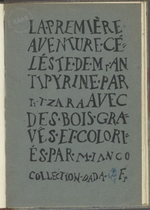 LA PREMIÈRE
AVENTURE CÉ
LÉSTE DE Mʳ AN
TIPYRINE PAR
T. TZARA AVEC
DES BOIS GRA
VÉS ET COLORI
ÉS PAR M. JANCO
COLLECTION DADA